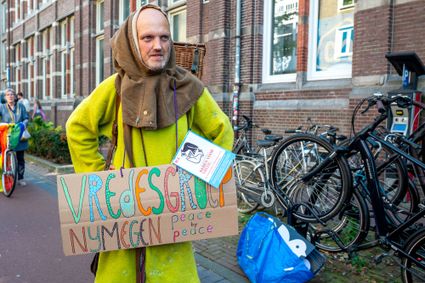 VREdESGROEP
NYMEGEN peace
by
peace